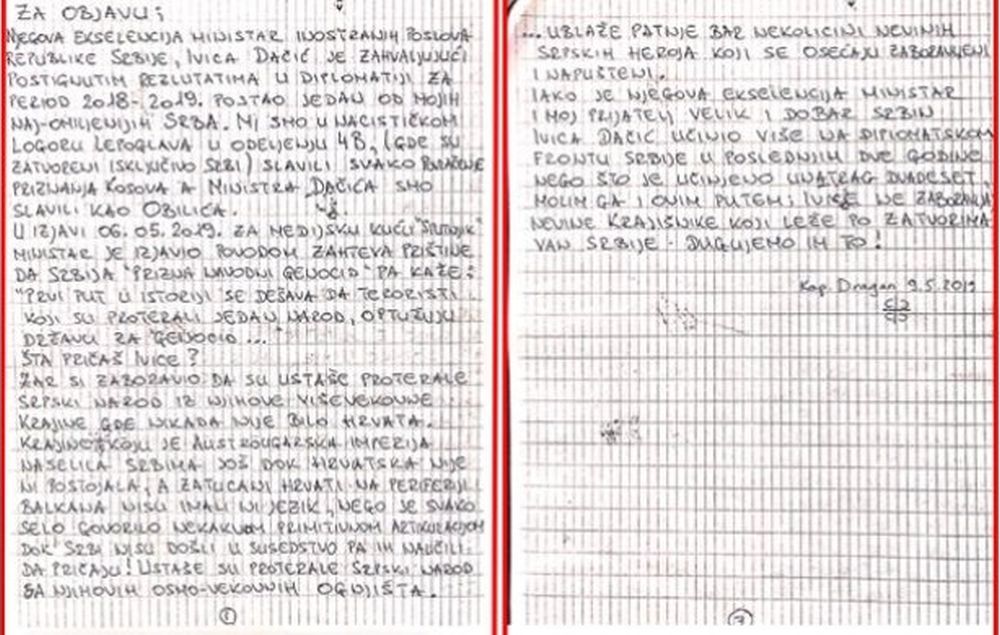 ZA OBJAVU;
NJEGOVA EKSELENCIJA MINISTAR INOSTRANIH POSLOVA
REPUBLIKE SRBIJE, IVICA DAČIĆ JE ZAHVALJUJUĆI
POSTIGNUTIM REZLUTATIMA U DIPLOMATIJI ZA
PERIOD 2018-2019. POSTAO JEDAN OD MOJIH
NAJ-OMILJENIJIH SRBA. MI SMO U NACISTIČKOM
LOGORU LEPOGLAVA U ODELJENJU 4B, (GDE SU
ZATVORENI ISKLJUČIVO SRBI) SLAVILI SVAKO POVLAČENJE
PRIZNANJA KOSOVA A MINISTRA DAČIĆA SMO
SLAVILI KAO OBILIĆA.
U IZJAVI 06.05.2019. ZA MEDIJSKU KUĆU "SPUTNJIK"
MINISTAR JE IZJAVIO POVODOM ZAHTEVA PRIŠTINE
DA SRBIJA "PRIZNA NAVODNI GENOCID" PA KAŽE:
"PRVI PUT U ISTORIJI SE DEŠAVA DA TERORISTI
KOJI SU PROTERALI JEDAN NAROD, OPTUŽUJU
DRŽAVU ZA GENOCID..."
ŠTA PRIČAŠ IVICE?
ZAR SI ZABORAVIO DA SU USTAŠE PROTERALE
SRPSKI NAROD IZ NJIHOVE VIŠEVEKOVNE
KRAJINE GDE NIKADA NIJE BILO HRVATA.
KRAJINE KOJU JE AUSTROUGARSKA IMPERIJA
NASELILA SRBIMA JOŠ DOK HRVATSKA NIJE
NI POSTOJALA, A ZATUCANI HRVATI NA PERIFERIJI
BALKANA NISU IMALI NI JEZIK, NEGO JE SVAKO
SELO GOVORILO NEKAKVOM PRIMITIVNOM ARTIKULACIJOM
DOK SRBI NISU DOŠLI U SUSEDSTVO PA IH NAUČILI
DA PRIČAJU! USTAŠE SU PROTERALE SRPSKI NAROD
SA NJIHOVIH OSMO-VEKOVNIH OGNJIŠTA.
1
... UBLAŽE PATNJE BAR NEKOLICINI NEVINIH
SRPSKIH HEROJA KOJI SE OSEĆAJU ZABORAVLJENI
I NAPUŠTENI.
IAKO JE NJEGOVA EKSELENCIJA MINISTAR
I MOJ PRIJATELJ VELIK I DOBAR SRBIN
IVICA DAČIĆ UČINIO VIŠE NA DIPLOMATSKOM
FRONTU SRBIJE U POSLEDNJIH DVE GODINE
NEGO ŠTO JE UČINJENO UNATRAG DVADESET,
MOLIM GA I OVIM PUTEM; IVICE NE ZABORAVLJA
NEVINE KRAJIŠNIKE KOJI LEŽE PO ZATVORIMA
VAN SRBIJE. DUGUJEMO IM TO!
Kap. Dragan 9.5.2019